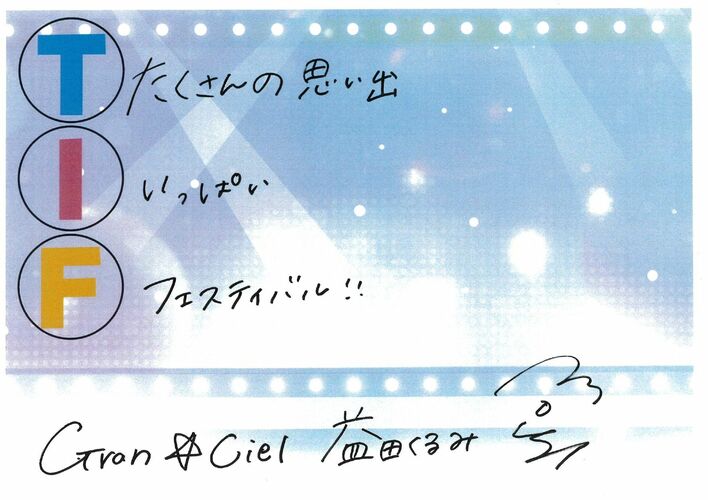 T たくさんの思い出
I いっぱい
F フェスティバル!!
Gran☆Ciel 益田くるみ